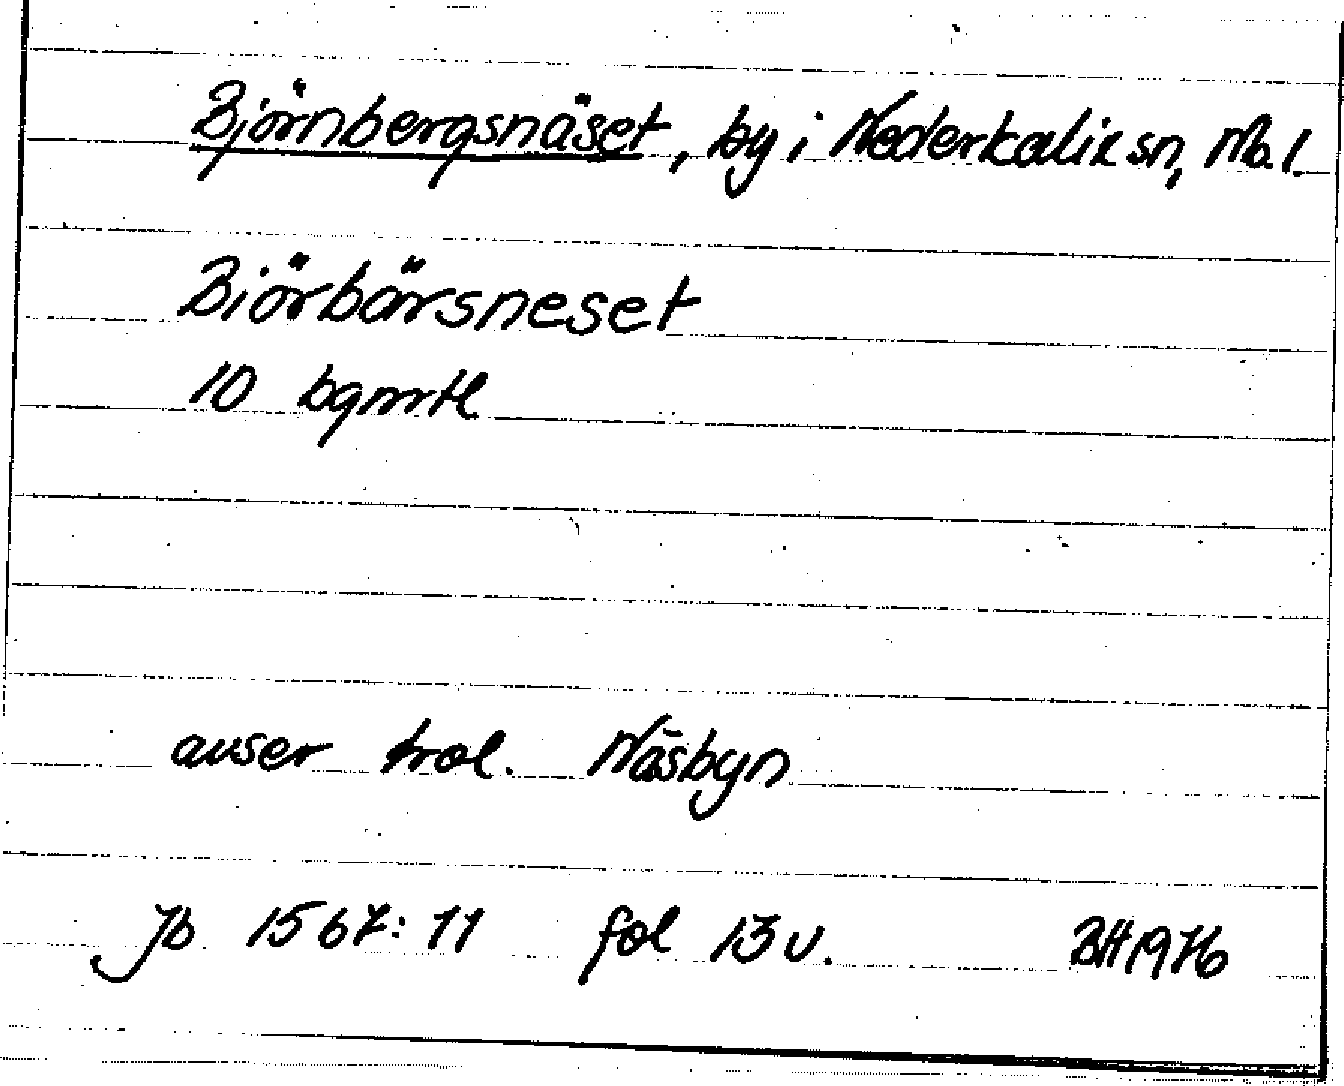 Björnbergsnäset, by i Nederkalix sn, Nb. l.
Biörbörsneset
10 bgmrtl
avser trol. Näsbyn
Jb 1567:11 fol 13 v. BH 1976